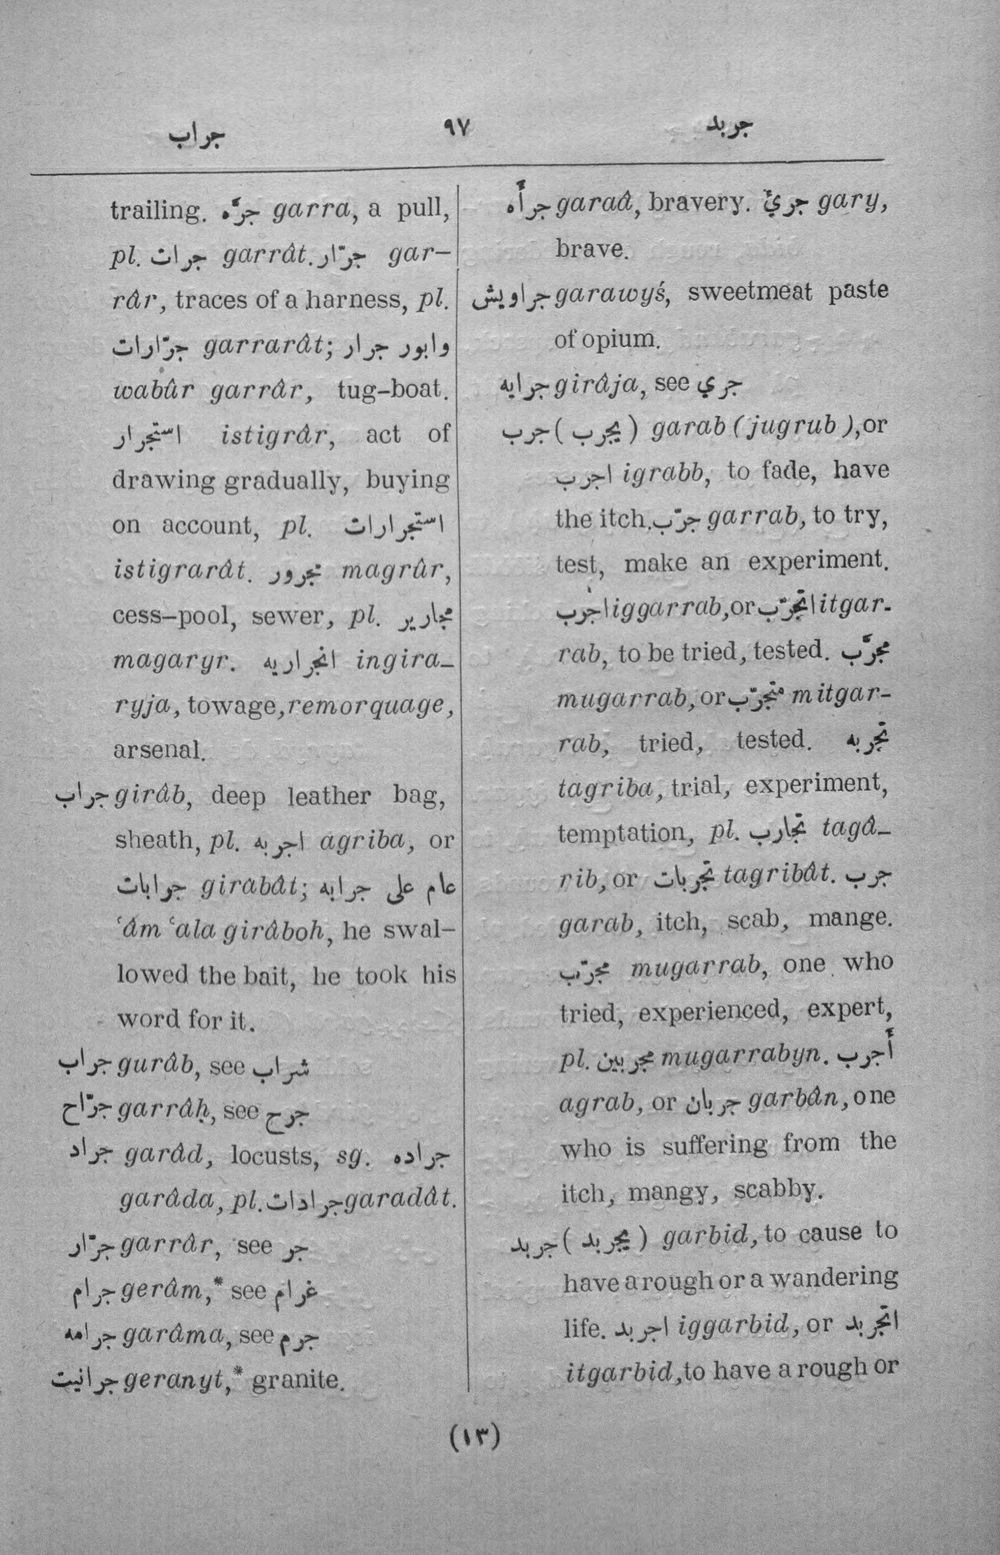 جراب ٩٧ جربد
trailing. جرَّه garra, a pull,
pl. جرات garrât. جرّار gar-
râr, traces of a harness, pl.
جرّارات garrarât; وابور جرار
wabûr garrâr, tug-boat.
استجرار istigrâr, act of
drawing gradually, buying
on account, pl. استجرارات
istigrarât. مجرور magrûr,
cess-pool, sewer, pl. مجارير
magaryr. انجراريه ingira-
ryja, towage, remorquage,
arsenal.
جراب girâb, deep leather bag,
sheath, pl. اجربه agriba, or
جرابات girabât; عام على جرابه
ʿâm ʿala girâboh, he swal-
lowed the bait, he took his
word for it.
جراب gurâb, see شراب
جرّاح garrâḥ, see جرح
جراد garâd, locusts, sg. جراده
garâda, pl. جرادات garadât.
جرّار garrâr, see جر
جرام gerâm,* see غرام
جرامه garâma, see جرم
جرانيت geranyt,* granite.
جرأَه garaâ, bravery. جريٌ gary,
brave.
جراويش garawyś, sweetmeat paste
of opium.
جرايه girâja, see جري
جرب (يجرب) garab (jugrub), or
اجرب igrabb, to fade, have
the itch. جرّب garrab, to try,
test, make an experiment.
اجرب iggarrab, or اتجرّب itgar-
rab, to be tried, tested. مجرَّب
mugarrab, or متجرّب mitgar-
rab, tried, tested. تجربه
tagriba, trial, experiment,
temptation, pl. تجارب tagâ-
rib, or تجربات tagribât. جرب
garab, itch, scab, mange.
مجرّب mugarrab, one who
tried, experienced, expert,
pl. مجربين mugarrabyn. أَجرب
agrab, or جربان garbân, one
who is suffering from the
itch, mangy, scabby.
جربد (يجربد) garbid, to cause to
have a rough or a wandering
life. اجربد iggarbid, or اتجربد
itgarbid, to have a rough or
(١٣)